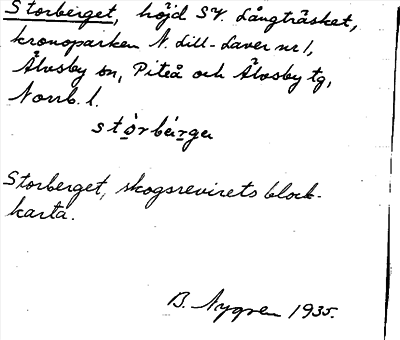 Storberget, höjd SV. Långträsket,
kronoparken N. Lill-Laver nr 1,
Älvsby sn, Piteå och Älvsby tg,
Norrb. l.
stòrbárga
Storberget, skogsrevirets block-
karta.
B. Nygren 1935.